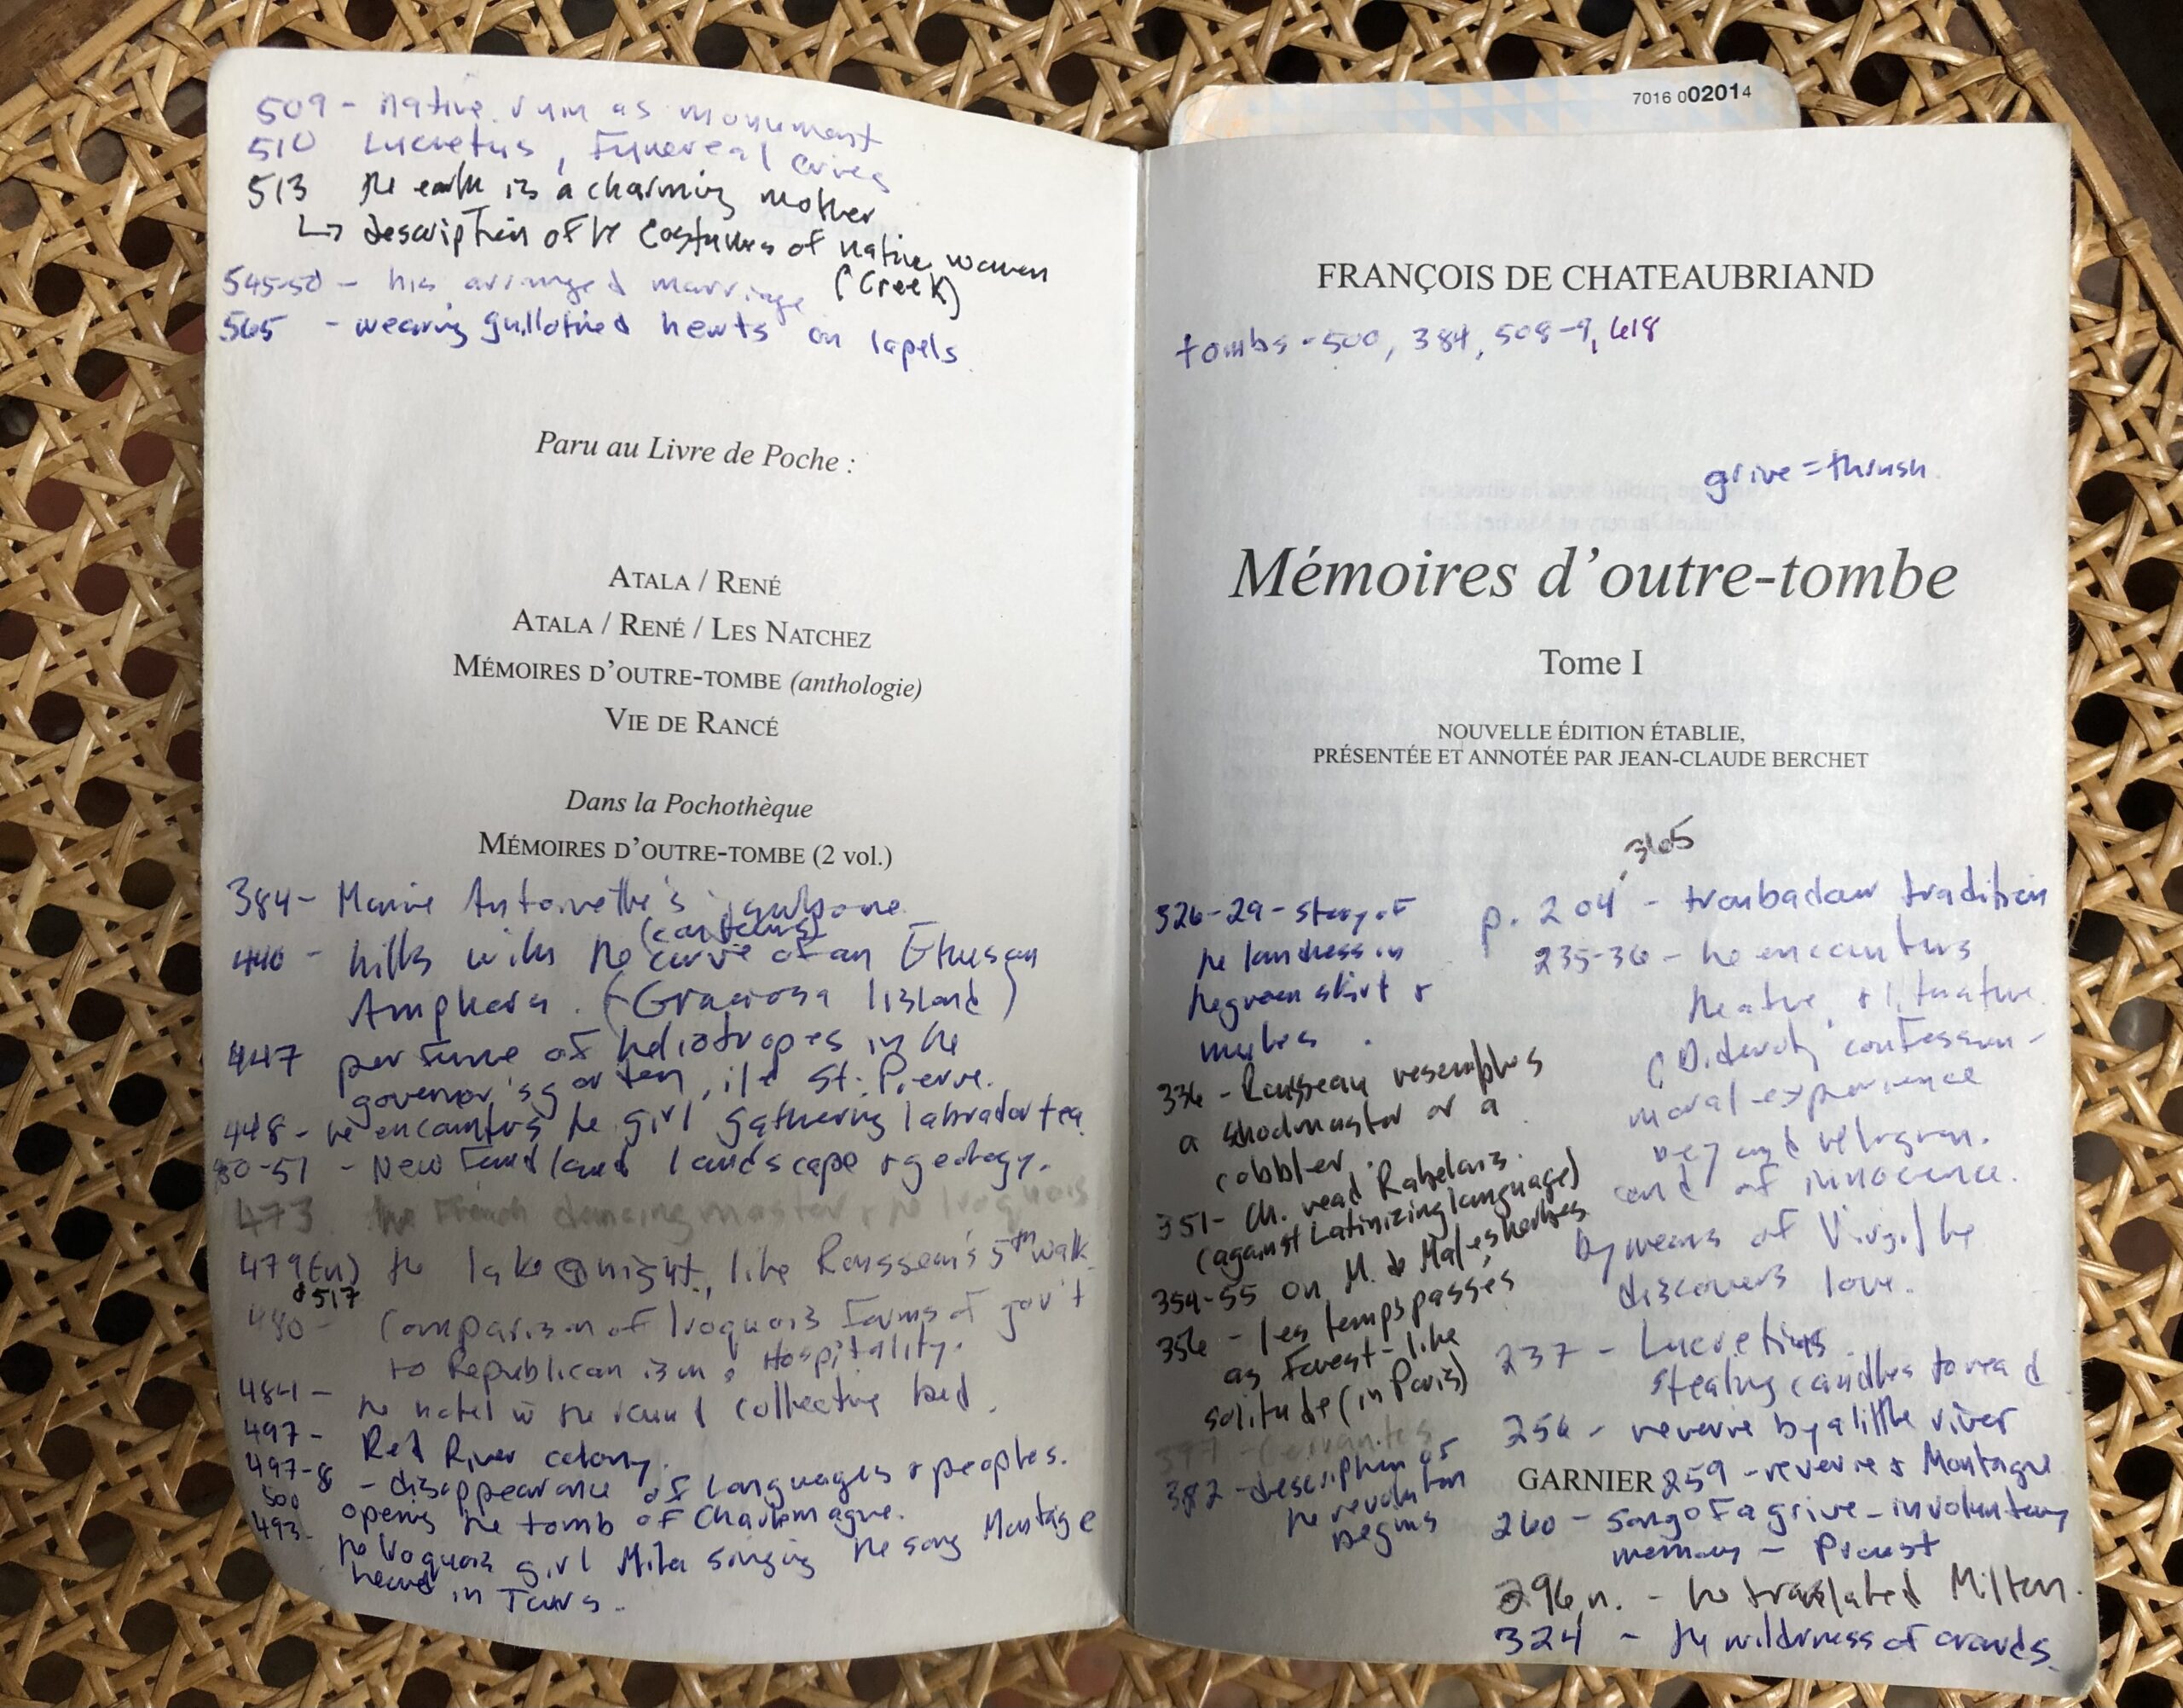 509 - native ruin as monument
510 Lucretus, Funereal Cries
513 the earth is a charming mother
↳ description of the costumes of native women
(Creek)
545-50 - his arranged marriage
565 - wearing guillotined hearts on lapels
Paru au Livre de Poche :
ATALA / RENÉ
ATALA / RENÉ / LES NATCHEZ
MÉMOIRES D'OUTRE-TOMBE (anthologie)
VIE DE RANCÉ
Dans la Pochothèque
MÉMOIRES D'OUTRE-TOMBE (2 vol.)
384 - Marie Antoinette's jawbone
440 - hills with the curve of an Etrusan
(contours)
Amphora. (Graciosa Iisland)
447 perfume of heliotropes in the
governor's garden, ile St. Pierre.
448 - he encounters the girl gathering labrador tea
50-51 - Newfoundland landscape & geology.
473 the French dancing master & the Iroquois
479(n) the lake @ night, like Rousseau's 5th walk
& 517
480 - Comparison of Iroquois forms of gov't
to Republicanism, Hospitality.
484 - the hotel w the round collective bed.
497 - Red River colony.
497-8 - disappearance of languages & peoples.
500 opening the tomb of Charlemagne.
493 - the Iroquois girl Mila singing the song Montagne
heard in Tours.
7016 002014
FRANÇOIS DE CHATEAUBRIAND
tombs - 500, 384, 508-9, 618
grive = thrush
Mémoires d'outre-tombe
Tome I
NOUVELLE ÉDITION ÉTABLIE,
PRÉSENTÉE ET ANNOTÉE PAR JEAN-CLAUDE BERCHET
326-29 - Story of
the landress in
the green skirt &
mules.
336 - Rousseau resembles
a schoolmaster or a
cobbler.
351 - Ch. read Rabelais.
(against Latinizing language)
354-55 on M. de Malesherbes
356 - les temps passes
as Forest-like
solitude (in Paris)
397 - Cervantes
382 - description of
the revolution
begins
, 365
p. 204 - troubadour tradition
235-36 - he encounters
theatre & literature
(Diderot, confession -
moral experience
beyond religion.
end of innocence.
by means of Virgil he
discovers love.
237 - Lucretius
stealing candles to read
256 - reverie by a little river
GARNIER
259 - reverie & Montagne
260 - song of a grive - involuntary
memory - Proust
296 n. - he translated Milton.
324 - the wilderness of crowds.